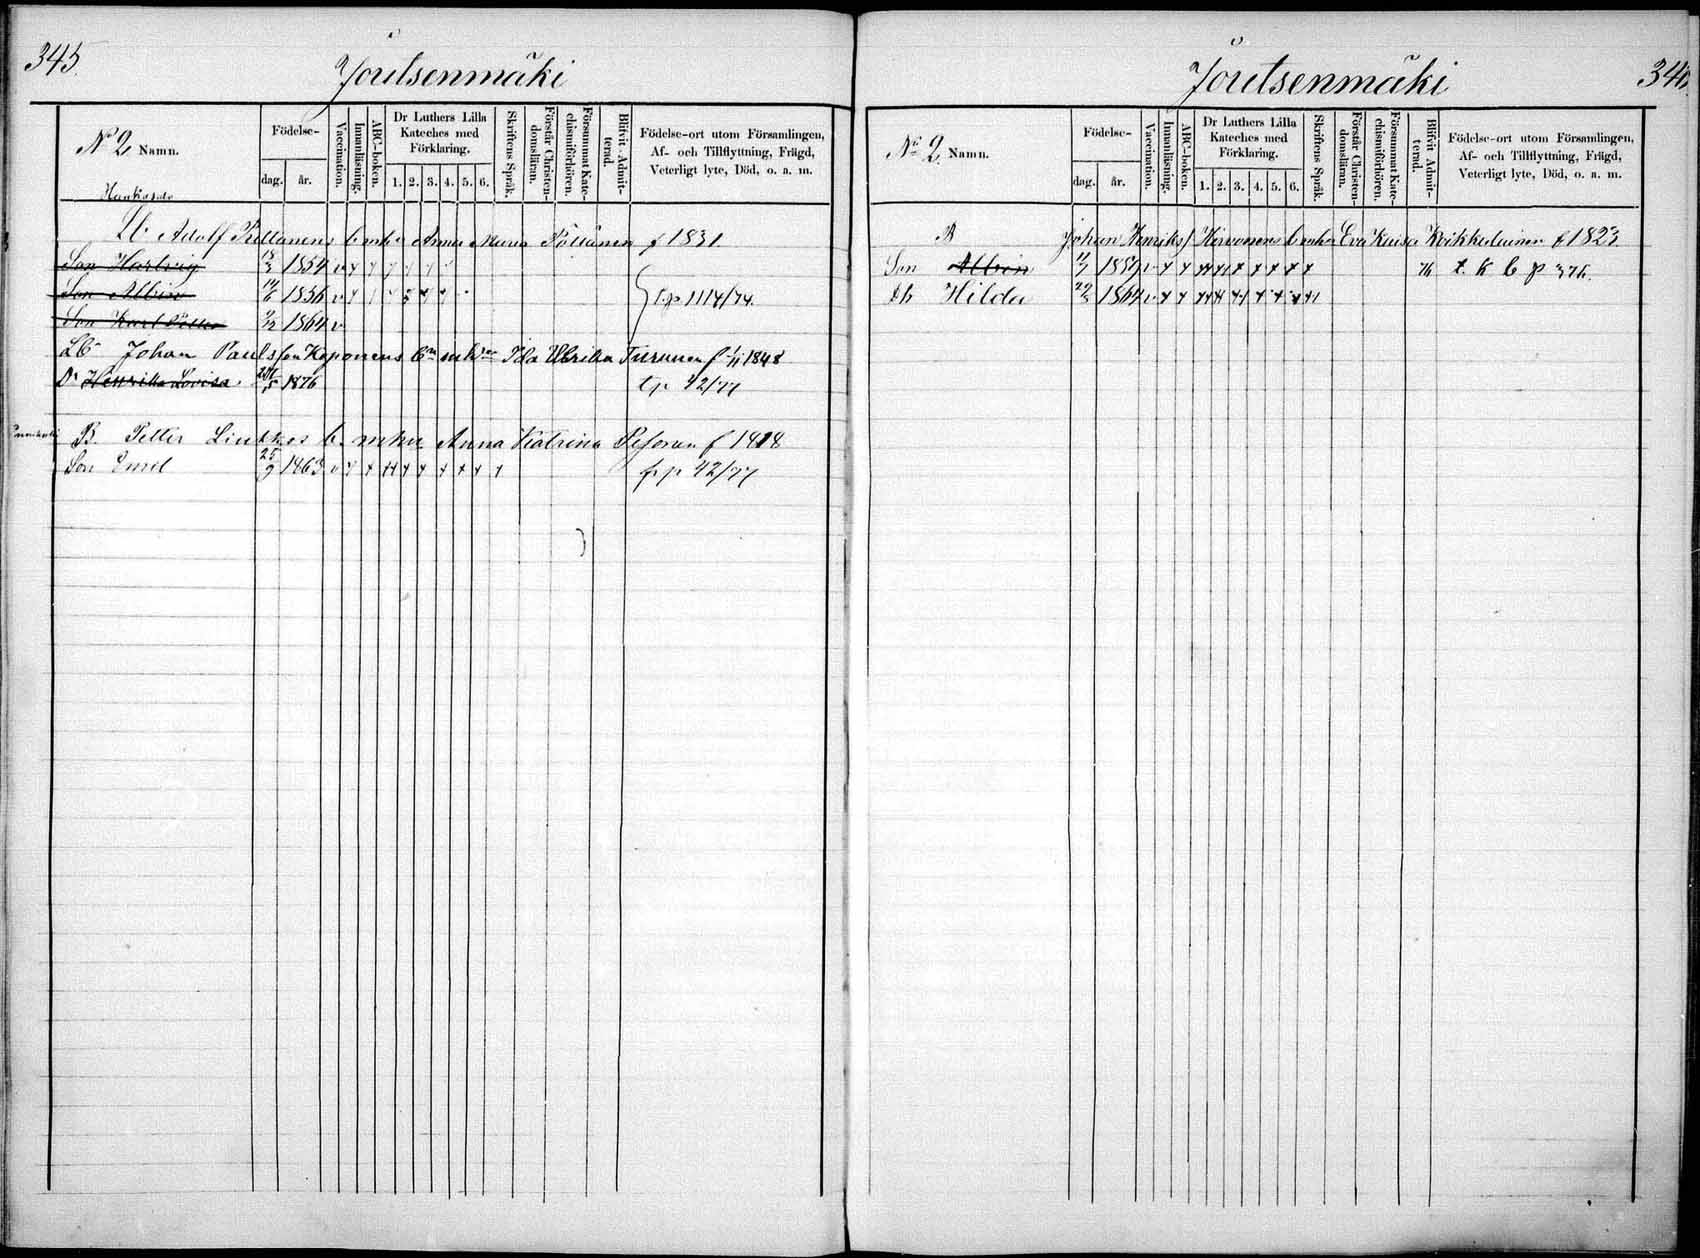 345.
Joutsenmäki
No 2 Namn.
Födelse-
dag. år.
Vaccination.
Innanläsning.
ABC-boken.
Dr Luthers Lilla
Kateches med
Förklaring.
1. 2. 3. 4. 5. 6.
Skriftens Språk.
Förstår Christen-
domsläran.
Försummat Kate-
chismiförhören.
Blifvit Admit-
terad.
Födelse-ort utom Församlingen,
Af- och Tillflyttning, Frägd,
Veterligt lyte, Död, o. a. m.
Lb Adolf enka Anna Maria Pöllänen f 1831
Son Hartvig 1854 v
Son Albin 1856 v
t. p 1114/74.
Son Karl Petter 1864 v
Lb Johan Paulsson Koponens mkr Ida Ulrika Turunen f 1848
Dr Henrika Lovisa 1876 t p 42/77
B. Petter Liukkos b. mkr Anna Katrina Pesonen f 1818
Son Emil 25/9 1863 v p 42/77
346.
Joutsenmäki
No 2 Namn.
Födelse-
dag. år.
Vaccination.
Innanläsning.
ABC-boken.
Dr Luthers Lilla
Kateches med
Förklaring.
1. 2. 3. 4. 5. 6.
Skriftens Språk.
Förstår Christen-
domsläran.
Försummat Kate-
chismiförhören.
Blifvit Admit-
terad.
Födelse-ort utom Församlingen,
Af- och Tillflyttning, Frägd,
Veterligt lyte, Död, o. a. m.
B Johan Henriks Hirvonens enka Eva Kaisa f 1823
Son Albin v 76 t. k b p 376.
Dr Hilda 1864 v